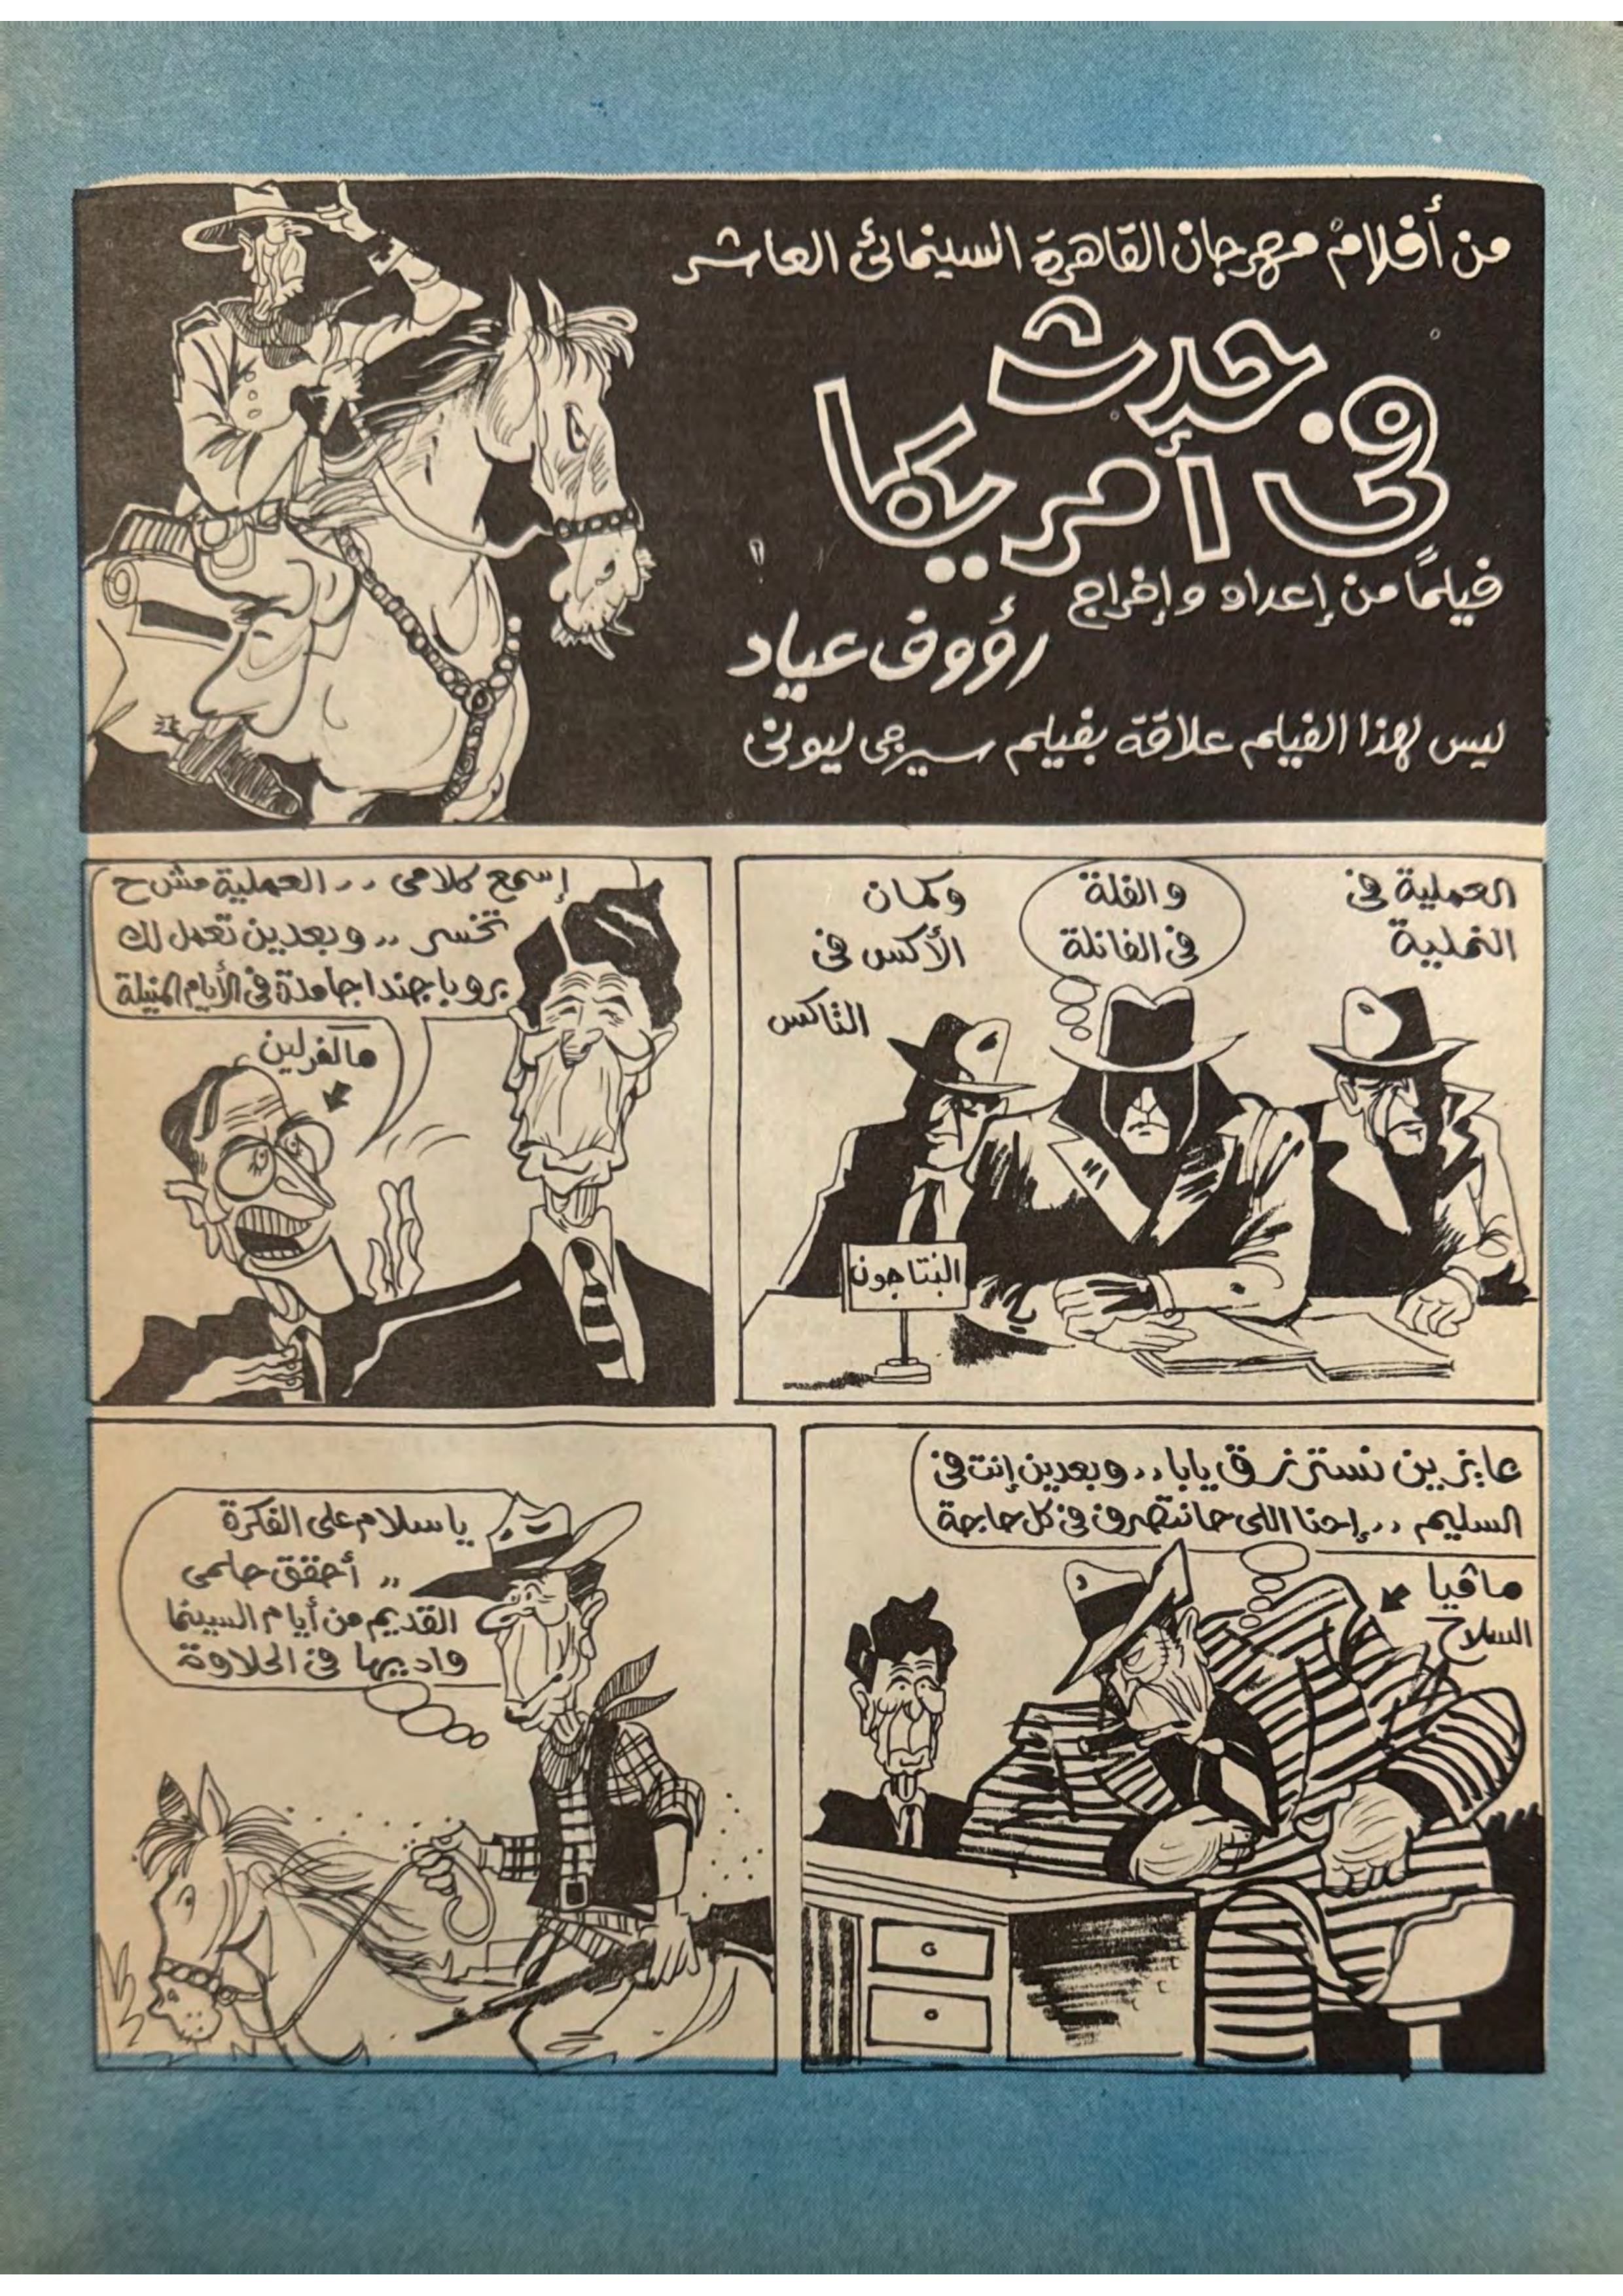 من أفلام مهرجان القاهرة السينمائى العاشر
حدث
فى أمريكا
فيلمًا من إعداد وإخراج
رؤوف عياد
ليس لهذا الفيلم علاقة بفيلم سيرجى ليونى
العملية فى
النملية
والفلة
فى الفانلة
وكمان
الأكس فى
التاكس
البنتاجون
إسمع كلامى .. العملية مش ح
تخسر .. وبعدين تعمل لك
بروباجندا جامدة فى الأيام المنيلة
ماكفرلين
عايزين نسترزق يابا .. وبعدين إنت فى
السليم .. إحنا اللى حانتصرف فى كل حاجة
مافيا
السلاح
ياسلام على الفكرة
.. أحقق حلمى
القديم من أيام السينما
واديها فى الحلاوة